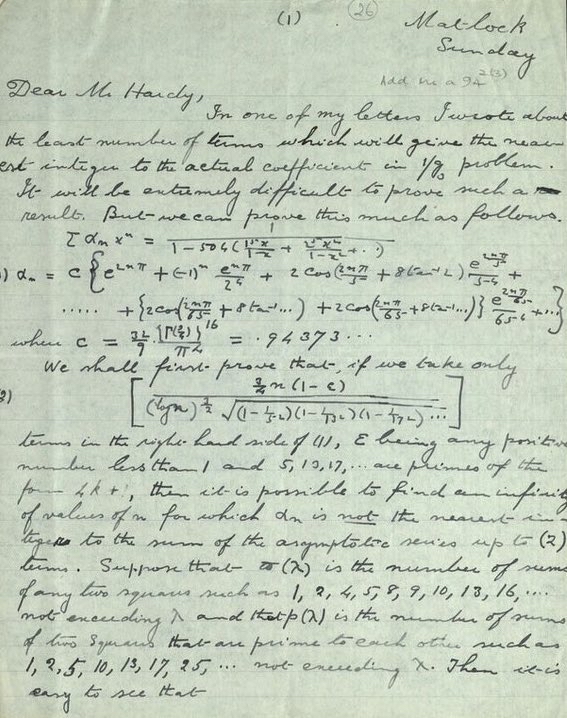 (1) (26)
Matlock
Sunday
Add Ms a 94 2(3)
Dear Mr Hardy,
In one of my letters I wrote about
the least number of terms which will give the near-
est integer to the actual coefficient in 1/g₃ problem.
It will be extremely difficult to prove such a
result. But we can prove this much as follows.
Σ αₙ xⁿ = 1 / (1-504(1⁵x/(1-x) + 2⁵x²/(1-x²) + ..))
1) αₙ = C { e^(2nπ) + (-1)ⁿ e^(nπ)/2⁴ + 2cos(2nπ/5 + 8tan⁻¹2) e^(2nπ/5)/5⁴ +
..... + {2cos(2nπ/65 + 8tan⁻¹...) + 2cos(2nπ/65 + 8tan⁻¹...)} e^(2nπ/65)/65⁴ + ...}
where C = {Γ(3/4)}^16 / π⁴ = .94373...
We shall first prove that, if we take only
2) [ n(1-ε) / (log n) √((1-1/3²)(1-1/7²)(1-1/11²)...) ]
terms in the right hand side of (1), ε being any positive
number less than 1 and 5, 13, 17, ... are primes of the
form 4k+1, then it is possible to find an infinity
of values of n for which αn is not the nearest in-
teger to the sum of the asymptotic series up to (2)
terms. Suppose that ϖ(λ) is the number of sums
of any two squares such as 1, 2, 4, 5, 8, 9, 10, 13, 16, ....
not exceeding λ and that ρ(λ) is the number of sums
of two squares that are prime to each other such as
1, 2, 5, 10, 13, 17, 25, ... not exceeding λ. Then it is
easy to see that